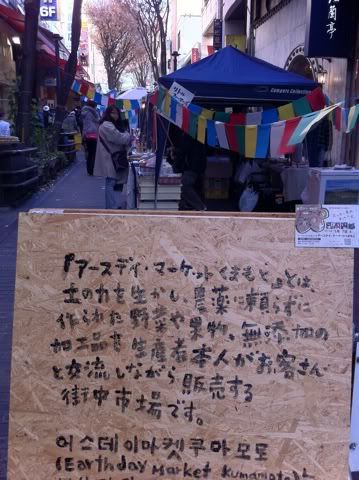 『アースデイ・マーケットくまもと』とは、
土の力を生かし、農薬に頼らずに
作られた野菜や果物、無添加の
加工品を生産者本人がお客さん
と交流しながら販売する
街中市場です。
어스데이마켓쿠마모토
(Earthday Market Kumamoto)는
蘭亭
Campers Collection
6F